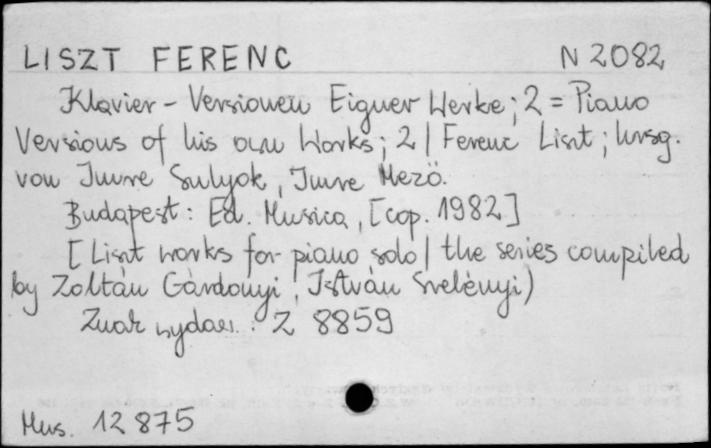 LISZT FERENC N 2082
Klavier - Versionen Eigner Werke ; 2 = Piano
Versions of his own Works ; 2 / Ferenc Liszt ; hrsg.
von Imre Sulyok, Imre Mezö.
Budapest : Ed. Musica, [cop. 1982]
[Liszt works for piano solo / the series compiled
by Zoltán Gárdonyi, István Szelényi)
Znak wydaw. : Z 8859
Mus. 12 875